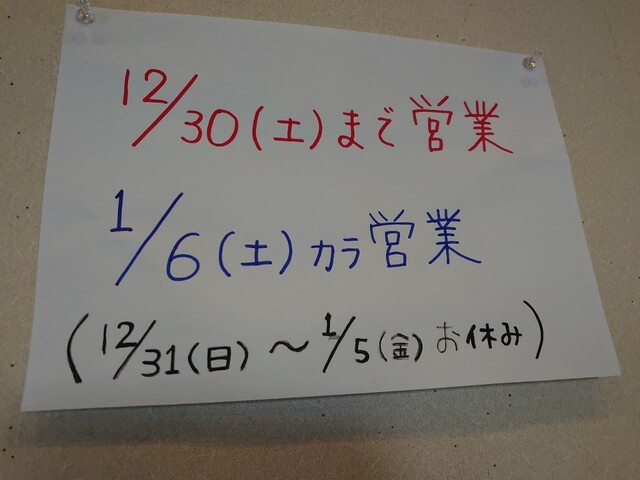 12/30(土)まで営業
1/6(土)カラ営業
(12/31(日)〜1/5(金)お休み)